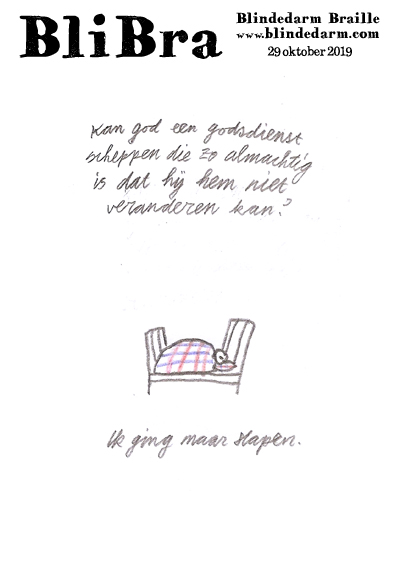 BliBra
Blindedarm Braille
www.blindedarm.com
29 oktober 2019
Kan god een godsdienst
scheppen die zo almachtig
is dat hij hem niet
veranderen kan?
Ik ging maar slapen.